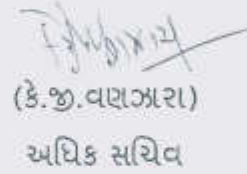 (કે.જી.વણઝારા)
અધિક સચિવ